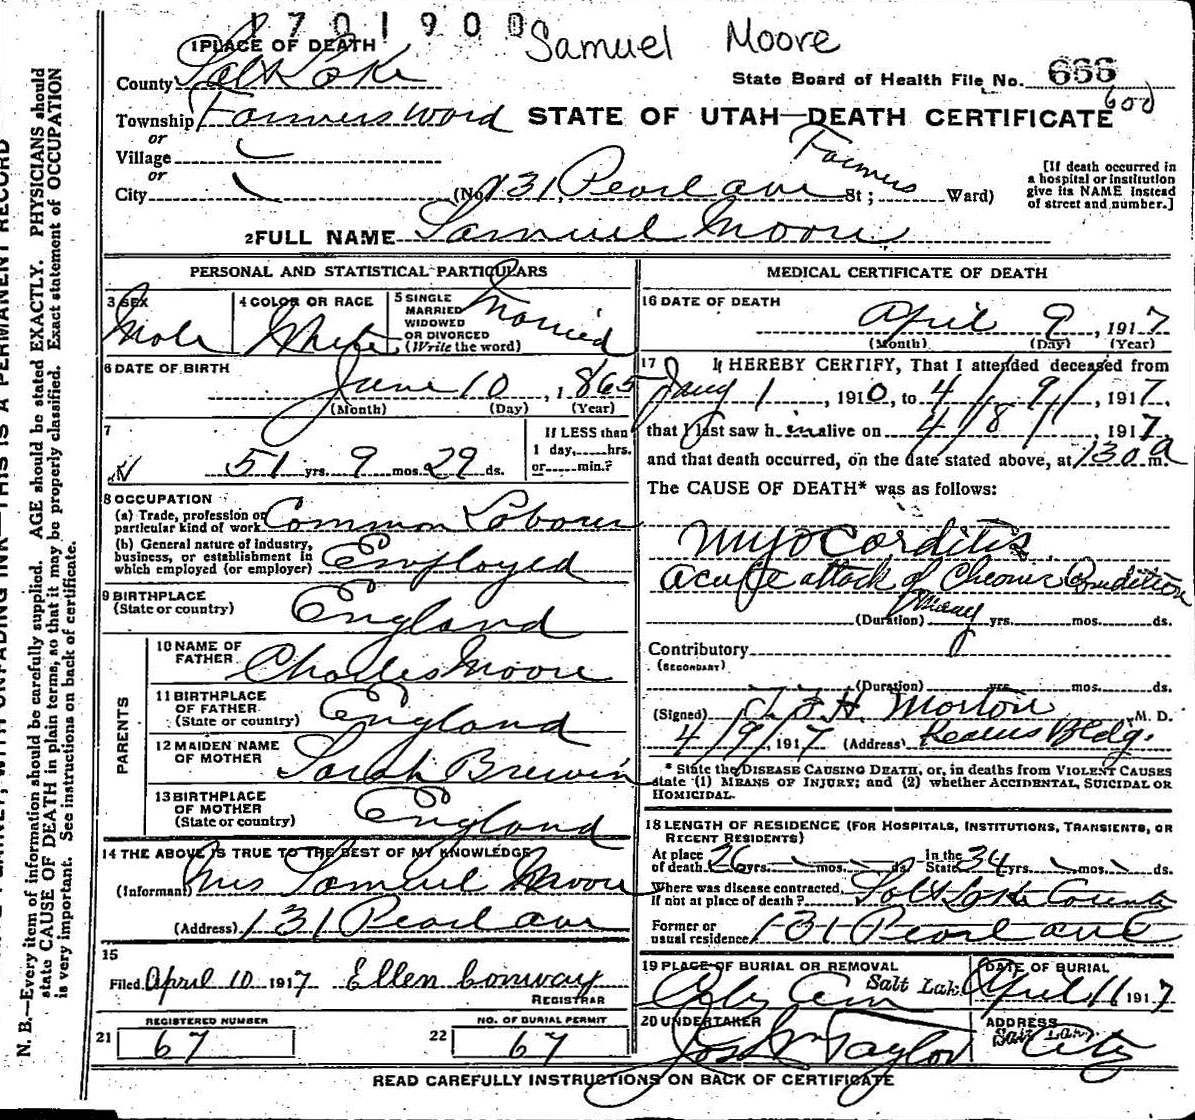 1701900
Samuel Moore
1 PLACE OF DEATH
County Salt Lake
State Board of Health File No. 666
600
Township Farmers Word STATE OF UTAH—DEATH CERTIFICATE
or
Village
or
City (No. 131 Pearl ave St; Farmers Ward)
[If death occurred in
a hospital or institution
give its NAME instead
of street and number.]
2 FULL NAME Samuel Moore
PERSONAL AND STATISTICAL PARTICULARS
3 SEX
Male
4 COLOR OR RACE
White
5 SINGLE
MARRIED
WIDOWED
OR DIVORCED
(Write the word)
Married
6 DATE OF BIRTH
June 10, 1865
(Month) (Day) (Year)
7
51 yrs. 9 mos. 29 ds.
If LESS than
1 day,......hrs.
or......min.?
8 OCCUPATION
(a) Trade, profession or
particular kind of work Common Labour
(b) General nature of industry,
business, or establishment in
which employed (or employer) Employed
9 BIRTHPLACE
(State or country) England
PARENTS
10 NAME OF
FATHER Charles Moore
11 BIRTHPLACE
OF FATHER
(State or country) England
12 MAIDEN NAME
OF MOTHER Sarah Brewin
13 BIRTHPLACE
OF MOTHER
(State or country) England
14 THE ABOVE IS TRUE TO THE BEST OF MY KNOWLEDGE
(Informant) Mrs Samuel Moore
(Address) 131 Pearl ave
15
Filed April 10 1917 Ellen Conway
REGISTRAR
21 REGISTERED NUMBER
67
22 NO. OF BURIAL PERMIT
67
MEDICAL CERTIFICATE OF DEATH
16 DATE OF DEATH
April 9, 1917
(Month) (Day) (Year)
17 I HEREBY CERTIFY, That I attended deceased from
Jany 1, 1910, to 4/9/, 1917,
that I last saw h im alive on 4/8/, 1917,
and that death occurred, on the date stated above, at 130 a m.
The CAUSE OF DEATH* was as follows:
Myocarditis
acute attack of Chronic Condition
(Duration) Many yrs. mos. ds.
Contributory
(SECONDARY)
(Duration) yrs. mos. ds.
(Signed) H. Morton M. D.
4/9/, 1917 (Address) Kearns Bldg.
* State the DISEASE CAUSING DEATH, or, in deaths from VIOLENT CAUSES
state (1) MEANS OF INJURY; and (2) whether ACCIDENTAL, SUICIDAL OR
HOMICIDAL.
18 LENGTH OF RESIDENCE (FOR HOSPITALS, INSTITUTIONS, TRANSIENTS, OR
RECENT RESIDENTS)
At place
of death 26 yrs. mos. ds. In the
State 34 yrs. mos. ds.
Where was disease contracted,
if not at place of death? Salt Lake County
Former or
usual residence 131 Pearl ave
19 PLACE OF BURIAL OR REMOVAL
City Cem Salt Lake
DATE OF BURIAL
April 11 1917
20 UNDERTAKER
Jos Wm Taylor
ADDRESS
Salt Lake City
READ CAREFULLY INSTRUCTIONS ON BACK OF CERTIFICATE
N. B.—Every item of information should be carefully supplied. AGE should be stated EXACTLY. PHYSICIANS should
state CAUSE OF DEATH in plain terms, so that it may be properly classified. Exact statement of OCCUPATION
is very important. See instructions on back of certificate.